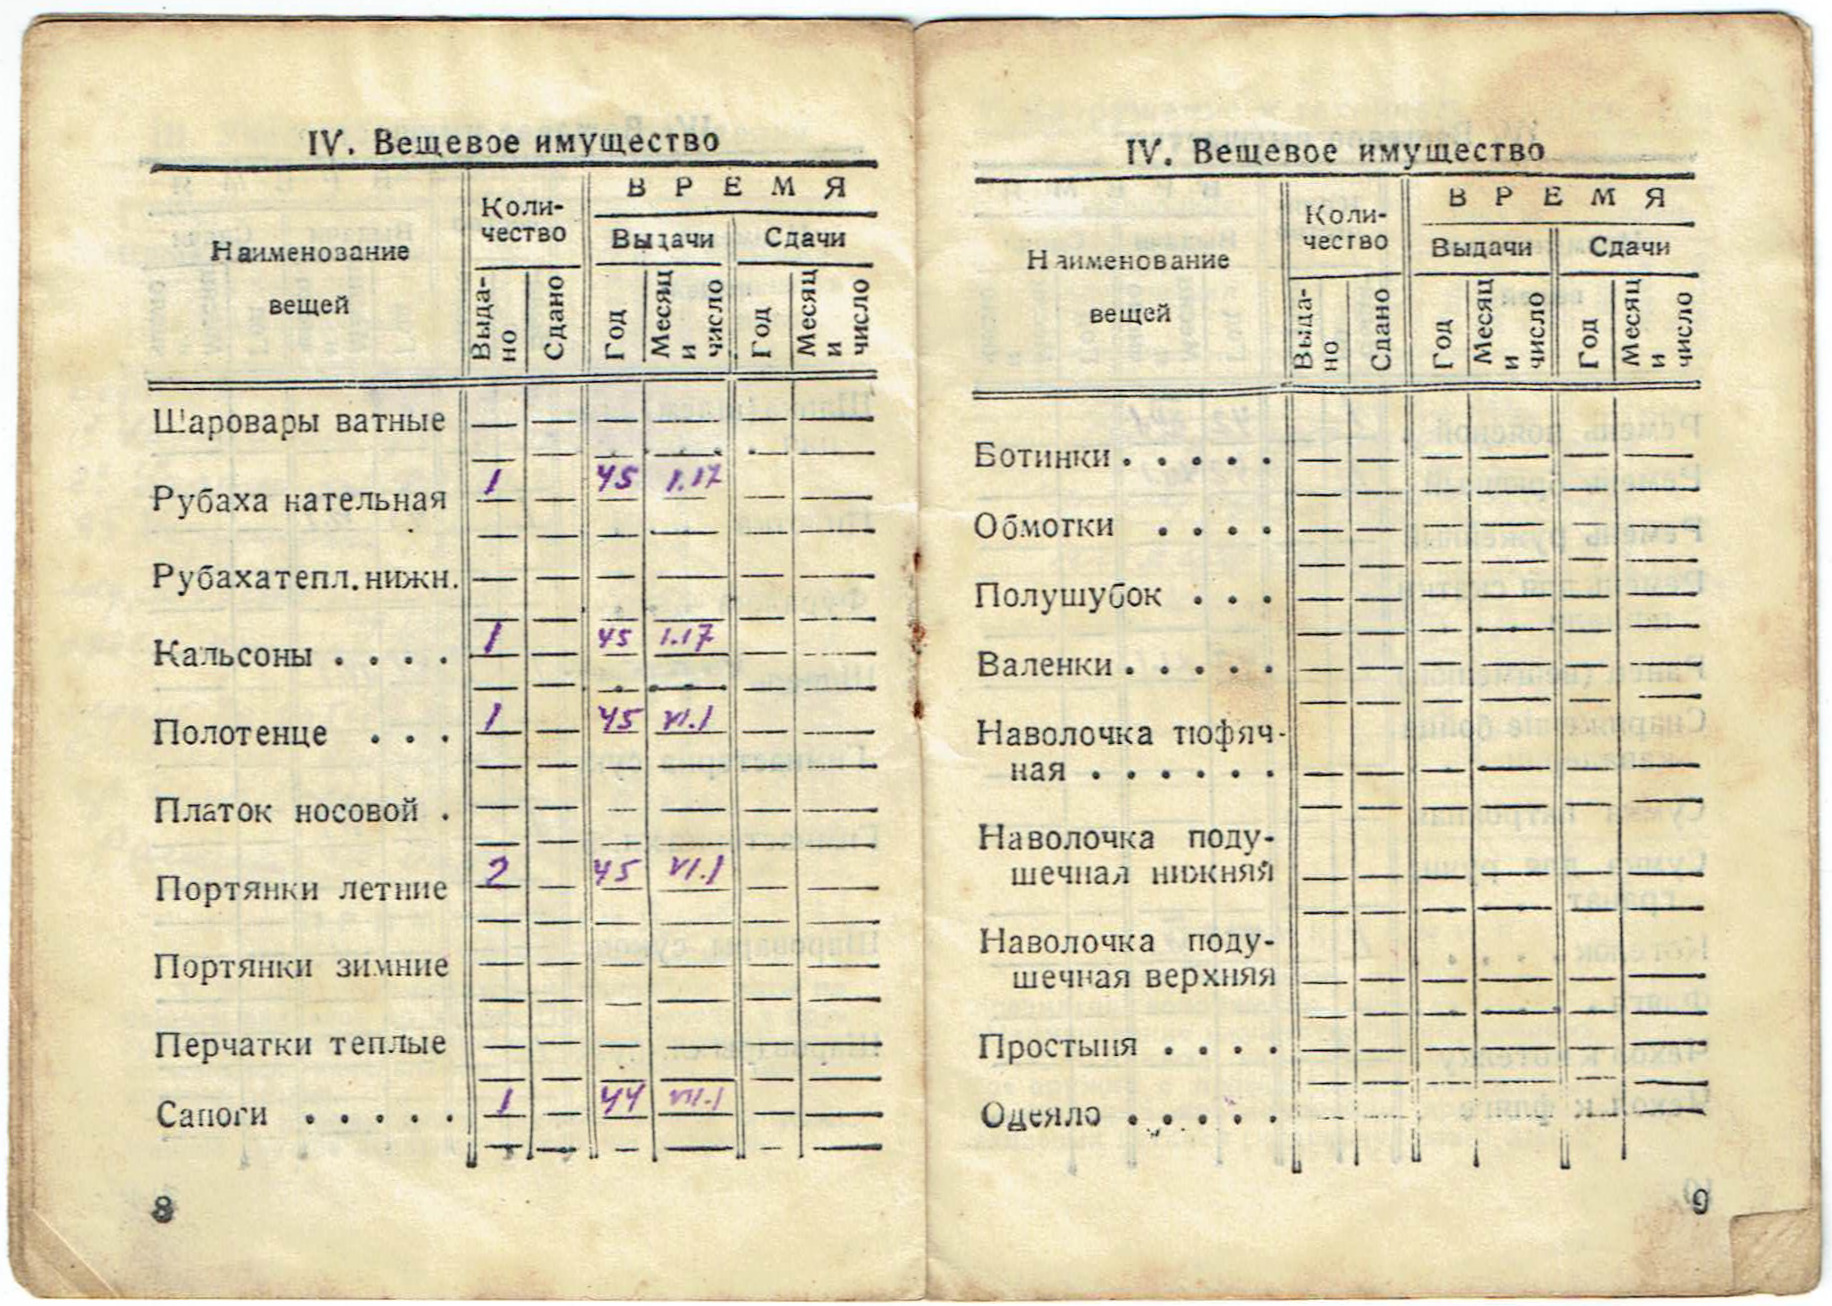 IV. Вещевое имущество
Наименование вещей
Коли-
чество
ВРЕМЯ
Выдачи
Сдачи
Выда-
но
Сдано
Год
Месяц
и
число
Год
Месяц
и
число
Шаровары ватные
Рубаха нательная 1 45 1.17
Рубаха тепл. нижн.
Кальсоны . . . . 1 45 1.17
Полотенце . . . 1 45 VI.1
Платок носовой .
Портянки летние 2 45 VI.1
Портянки зимние
Перчатки теплые
Сапоги . . . . . 1 44 VII.1
8
IV. Вещевое имущество
Наименование вещей
Коли-
чество
ВРЕМЯ
Выдачи
Сдачи
Выда-
но
Сдано
Год
Месяц
и
число
Год
Месяц
и
число
Ботинки . . . . .
Обмотки . . . .
Полушубок . . .
Валенки . . . . .
Наволочка тюфяч-
ная . . . . . .
Наволочка поду-
шечная нижняя
Наволочка поду-
шечная верхняя
Простыня . . . .
Одеяло . . . . .
9